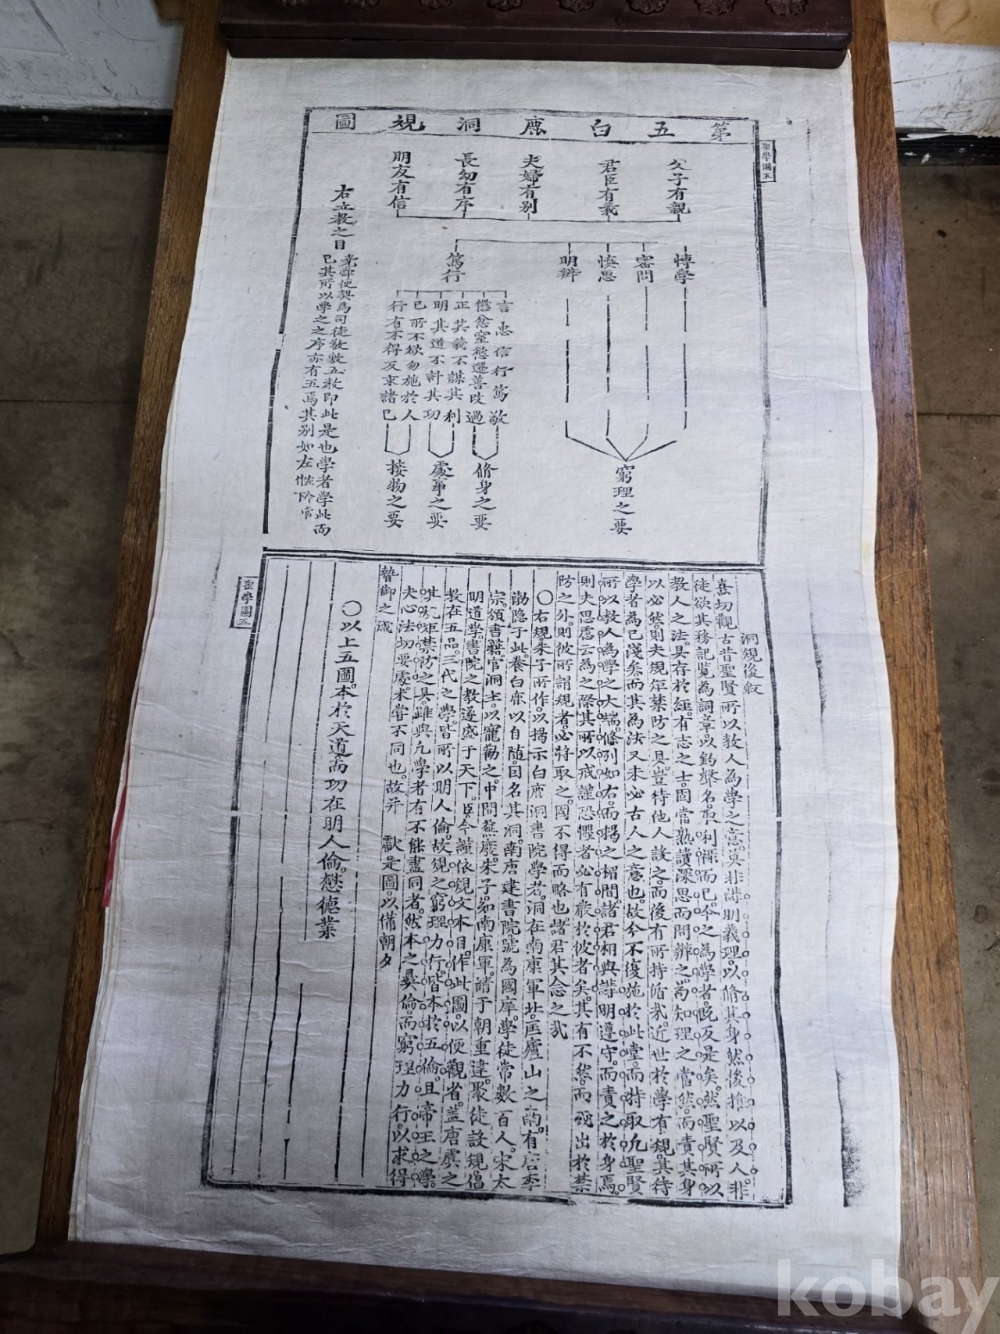 第五白鹿洞規圖
聖學圖五
父子有親
君臣有義
夫婦有別
長幼有序
朋友有信
右五教之目
堯舜使契為司徒敬敷五教即此是也學者學此而
已其所以學之之序亦有五焉其別如左
博學
審問
慎思
明辨
篤行
窮理之要
言忠信行篤敬
懲忿窒慾遷善改過
正其義不謀其利
明其道不計其功
己所不欲勿施於人
行有不得反求諸己
修身之要
處事之要
接物之要
聖學圖五
洞規後叙
熹切觀古昔聖賢所以教人為學之意。莫非講明義理。以修其身。然後推以及人。非
徒欲其務記覽為詞章。以釣聲名。取利祿而已。今之為學者。旣反是矣。然聖賢所以
教人之法。具存於經。有志之士。固當熟讀深思而問辨之。苟知理之當然。而責其身
以必然。則夫規矩禁防之具。豈待他人設之。而後有所持循哉。近世於學有規。其待
學者為已淺矣。而其為法又未必古人之意也。故今不復施於此堂。而特取凡聖賢
所以教人為學之大端。條列如右。而揭之楣間。諸君相與講明遵守。而責之於身焉。
則夫思慮云為之際。其所以戒謹恐懼者。必有嚴於彼者矣。其有不然。而或出於禁
防之外。則彼所謂規者。必將取之。固不得而略也。諸君其念之哉
○右規朱子所作。以揭示白鹿洞書院學者。洞在南康軍北匡廬山之南。有唐李
渤隱于此。養白鹿以自隨。因名其洞。南唐建書院。號為國庠。學徒常數百人。宋太
宗頒書籍。官洞主。以寵勸之。中間蕪廢。朱子知南康軍。請于朝重建。聚徒設規。倡
明道學。書院之教。遂盛于天下。臣今謹依規文本目。作此圖。以便觀省。蓋唐虞之
教在五品。三代之學。皆所以明人倫。故規之窮理力行。皆本於五倫。且帝王之學。
其規矩禁防之具。雖與凡學者有不能盡同者。然本之彝倫。而窮理力行。以求得
夫心法切要處。未嘗不同也。故并 獻是圖。以備朝夕
暬御之箴
○以上五圖。本於天道。而功在明人倫。懋德業
kobay